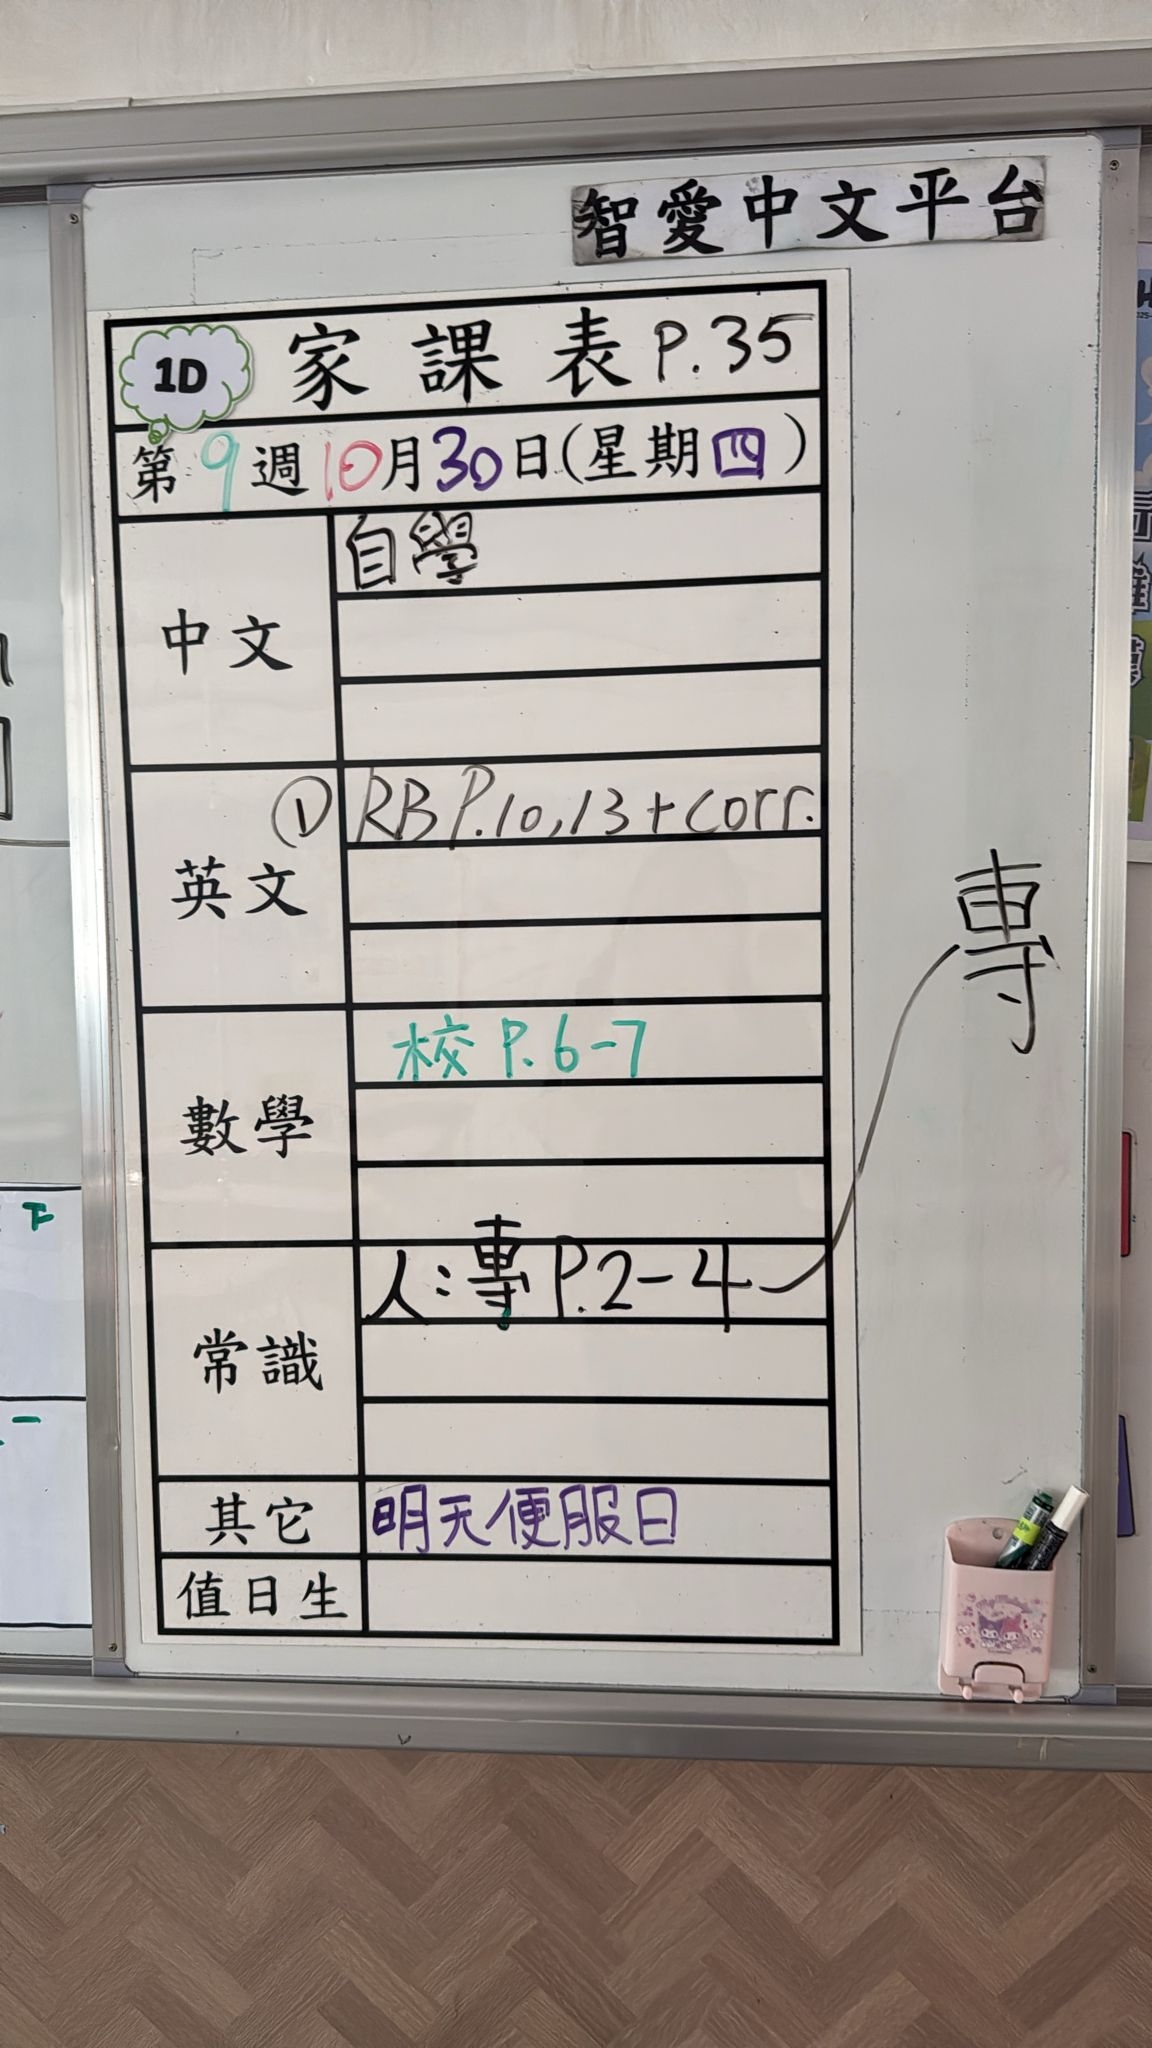 智愛中文平台
1D 家課表 P.35
第9週10月30日(星期四)
中文 自學
英文 ① RB P.10,13+corr.
數學 校 P.6-7
常識 人:專 P.2-4
專
其它 明天便服日
值日生
下